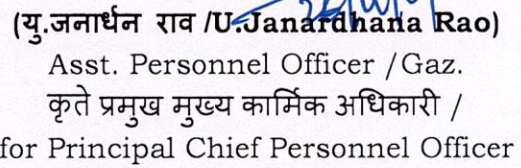 (यु.जनार्धन राव /U.Janardhana Rao)
Asst. Personnel Officer /Gaz.
कृते प्रमुख मुख्य कार्मिक अधिकारी /
for Principal Chief Personnel Officer